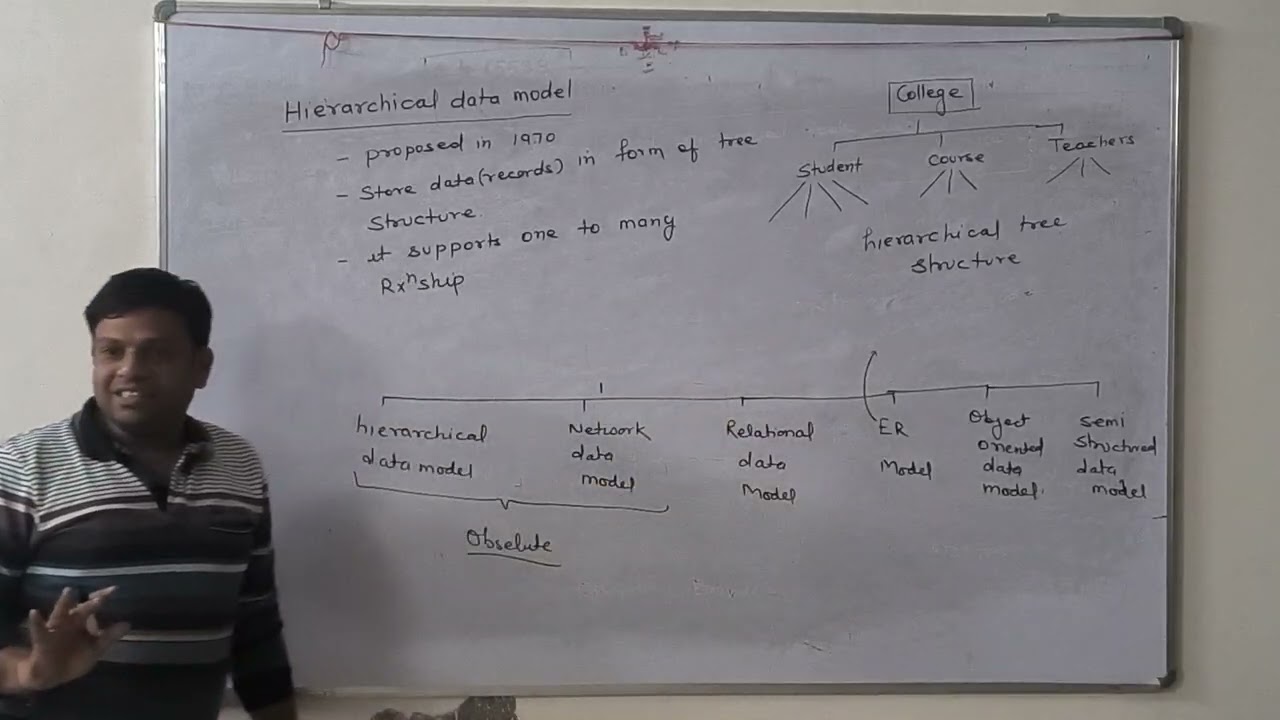 Hierarchical data model
- proposed in 1970
- Store data (records) in form of tree
structure.
- it supports one to many
Rxnship
College
Student
Course
Teachers
hierarchical tree
structure
hierarchical
data model
Network
data
model
Relational
data
Model
ER
Model
Object
oriented
data
model.
Semi
structured
data
model
Obselute